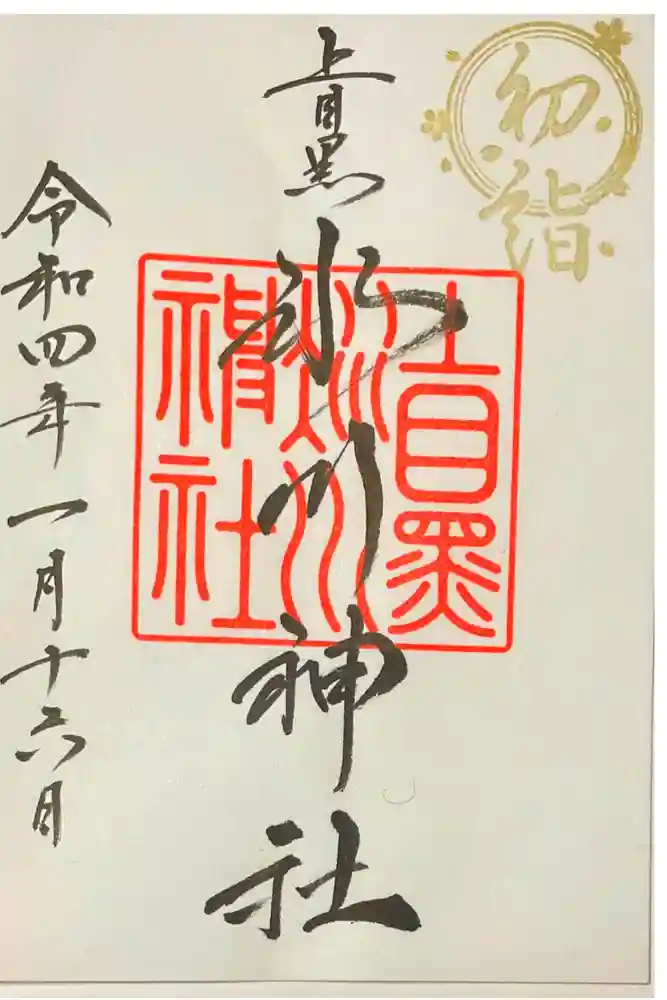 初詣
上目黒
氷川神社
上目黒
氷川
神社
令和四年一月十六日